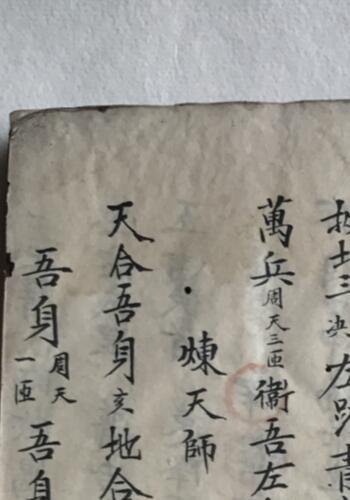 土三决左
萬兵周天三匝衞吾左
煉天師
天合吾身亥地合
吾身周天一匝吾身